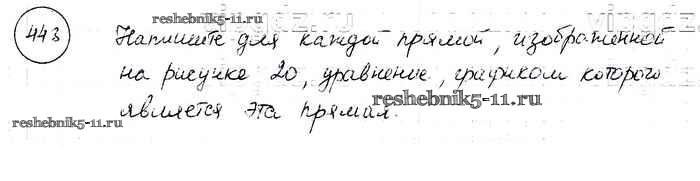 reshebnik5-11.ru
443 Напишите для каждой прямой, изображенной
на рисунке 20, уравнение, графиком которого
reshebnik5-11.ru
является эта прямая.
reshebnik5-11.ru